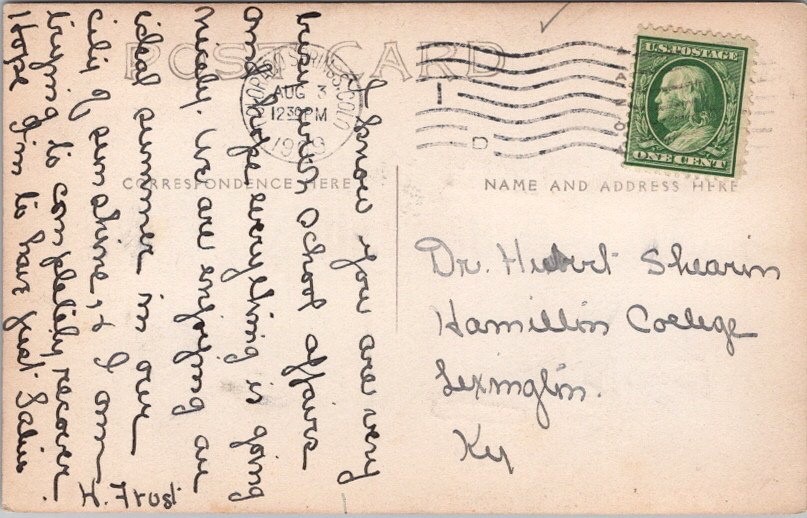 POST CARD
COLORADO SPRINGS, COLO
AUG 3
12 30 PM
1909
U.S. POSTAGE
ONE CENT
CORRESPONDENCE HERE
NAME AND ADDRESS HERE
I know you are very
busy with school affairs
and hope everything is going
nicely. We are enjoying an
ideal summer in our
city of sunshine, & I am
trying to completely recover.
Hope Jim to have
H. Frost
Dr. Hubert Shearin
Hamilton College
Lexington.
Ky